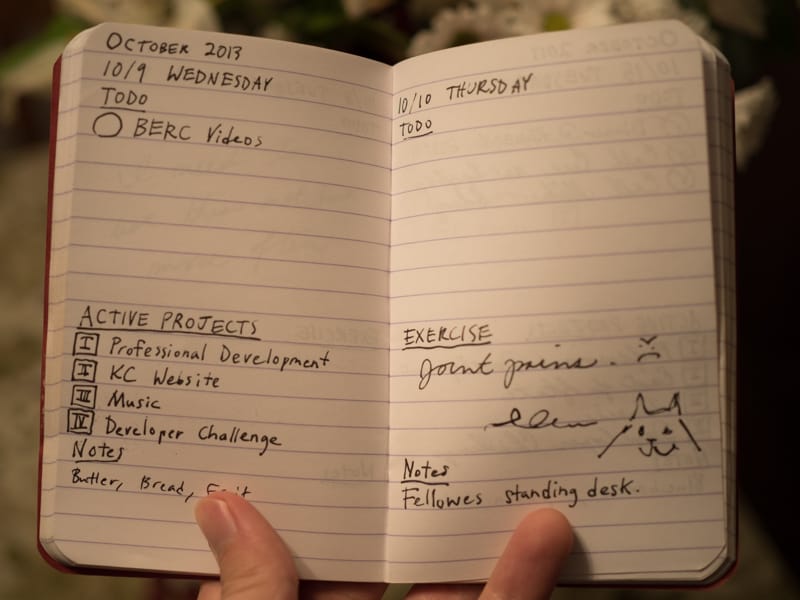 October 2013
10/9 Wednesday
TODO
BERC Videos
Active Projects
I Professional Development
II KC Website
III Music
IV Developer Challenge
Notes
Butter, Bread,
10/10 Thursday
TODO
Exercise
Joint pains.
Notes
Fellowes standing desk.